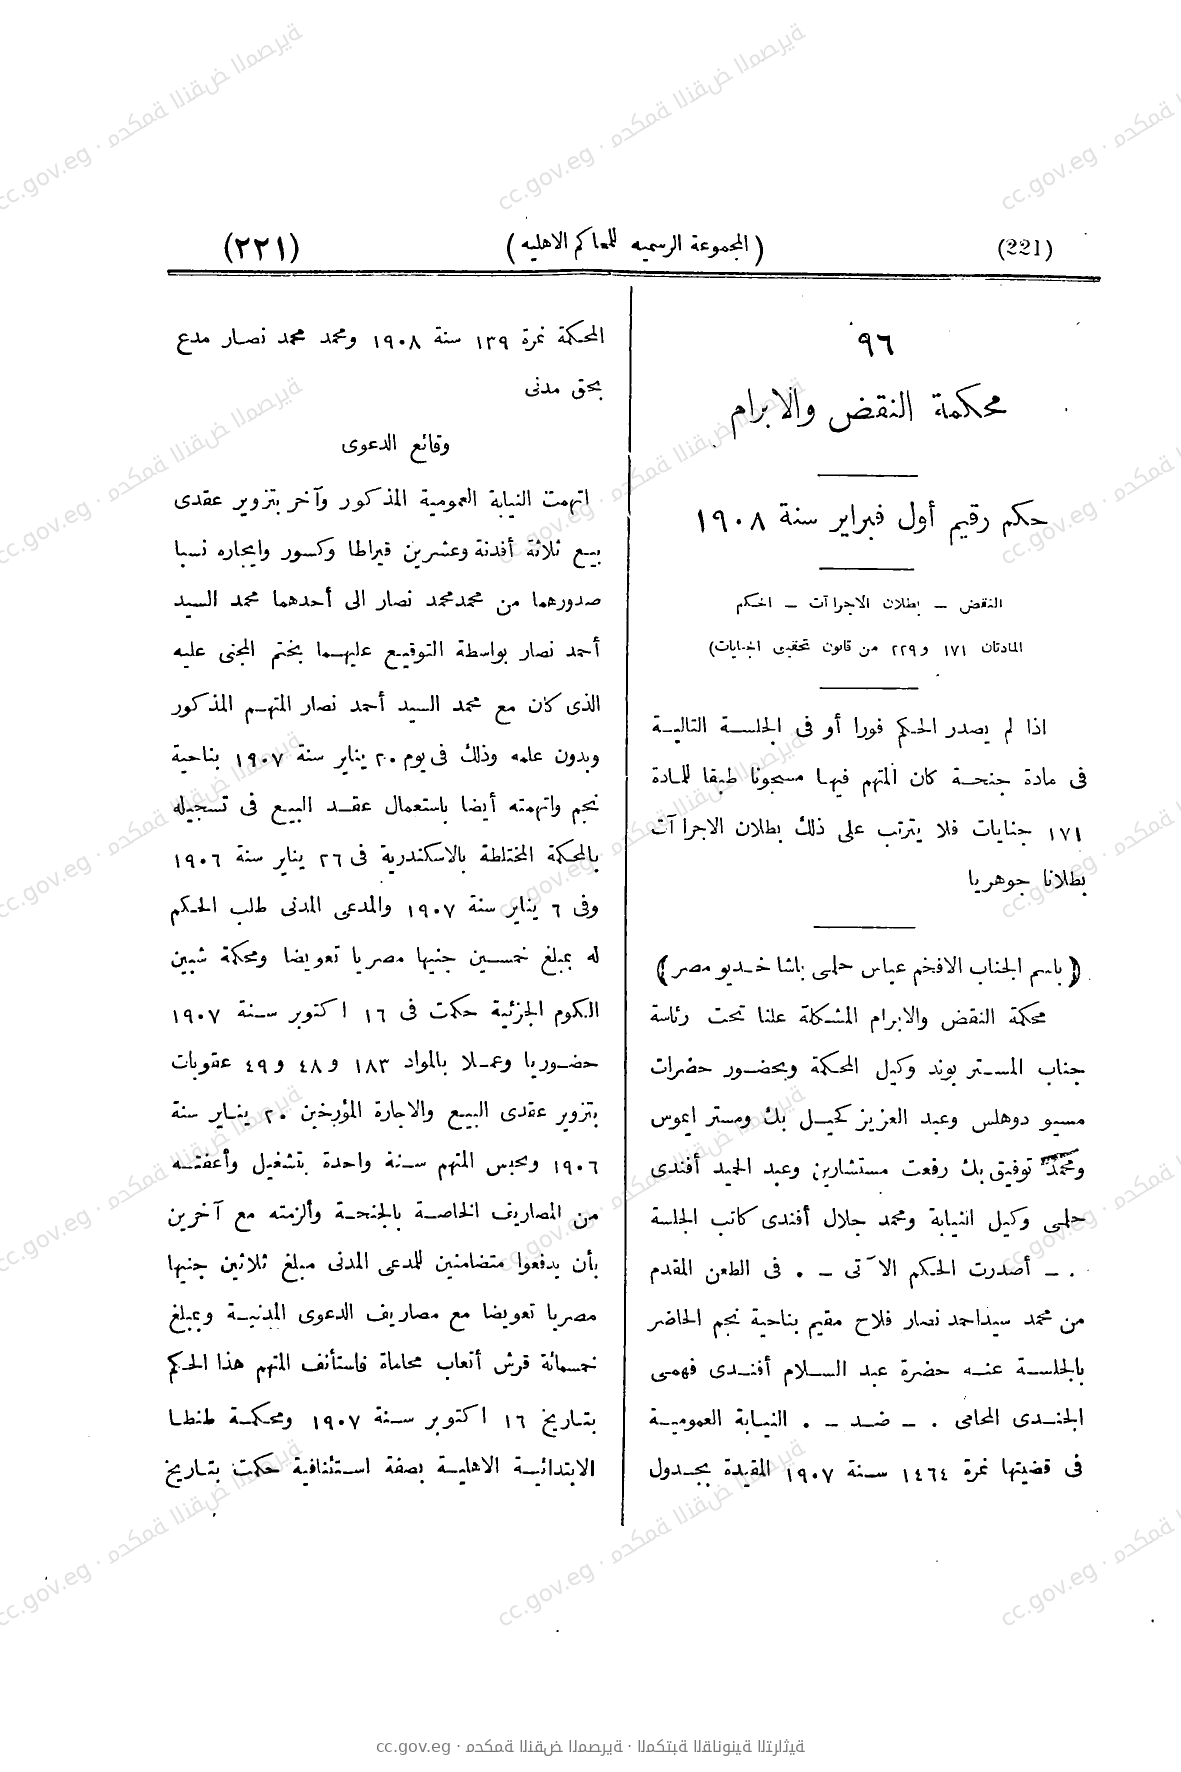 (221) (المجموعة الرسميه للمحاكم الاهليه) (٢٢١)
٩٦
محكمة النقض والابرام
حكم رقيم أول فبراير سنة ١٩٠٨
النقض – بطلان الاجراآت – الحكم
المادتان ١٧١ و٢٢٩ من قانون تحقيق الجنايات)
اذا لم يصدر الحكم فورا أو فى الجلسة التالية
فى مادة جنحة كان المتهم فيها مسجونا طبقا للمادة
١٧١ جنايات فلا يترتب على ذلك بطلان الاجراآت
بطلانا جوهريا
(باسم الجناب الافخم عباس حلمى باشا خديو مصر)
محكمة النقض والابرام المشكلة علنا تحت رئاسة
جناب المستر بوند وكيل المحكمة وبحضور حضرات
مسيو دوهلس وعبد العزيز كحيل بك ومستر ايموس
ومحمد توفيق بك رفعت مستشارين وعبد الحميد أفندى
حلمى وكيل النيابة ومحمد جلال أفندى كاتب الجلسة
. – أصدرت الحكم الآتى – . فى الطعن المقدم
من محمد سيداحمد نصار فلاح مقيم بناحية نجم الحاضر
بالجلسة عنه حضرة عبد السلام أفندى فهمى
الجندى المحامى . – ضد – . النيابة العمومية
فى قضيتها نمرة ١٤٦٤ سنة ١٩٠٧ المقيدة بجدول
المحكمة نمرة ١٣٩ سنة ١٩٠٨ ومحمد محمد نصار مدع
بحق مدنى
وقائع الدعوى
اتهمت النيابة العمومية المذكور وآخر بتزوير عقدى
بيع ثلاثة أفدنة وعشرين قيراطا وكسور وايجاره نسبا
صدورهما من محمدمحمد نصار الى أحدهما محمد السيد
أحمد نصار بواسطة التوقيع عليهما بختم المجنى عليه
الذى كان مع محمد السيد أحمد نصار المتهم المذكور
وبدون علمه وذلك فى يوم ٢٠ يناير سنة ١٩٠٧ بناحية
نجم واتهمته أيضا باستعمال عقد البيع فى تسجيله
بالمحكمة المختلطة بالاسكندرية فى ٢٦ يناير سنة ١٩٠٦
وفى ٦ يناير سنة ١٩٠٧ والمدعى المدنى طلب الحكم
له بمبلغ خمسين جنيها مصريا تعويضا ومحكمة شبين
الكوم الجزئية حكمت فى ١٦ اكتوبر سنة ١٩٠٧
حضوريا وعملا بالمواد ١٨٣ و٤٨ و٤٩ عقوبات
بتزوير عقدى البيع والاجارة المؤرخين ٢٠ يناير سنة
١٩٠٦ وبحبس المتهم سنة واحدة بتشغيل وأعفته
من المصاريف الخاصة بالجنحة وألزمته مع آخرين
بأن يدفعوا متضامنين للمدعى المدنى مبلغ ثلاثين جنيها
مصريا تعويضا مع مصاريف الدعوى المدنية وبمبلغ
خمسمائة قرش أتعاب محاماة فاستأنف المتهم هذا الحكم
بتاريخ ١٦ اكتوبر سنة ١٩٠٧ ومحكمة طنطا
الابتدائية الاهلية بصفة استئنافية حكمت بتاريخ
cc.gov.eg · محكمة النقض المصرية · المكتبة القانونية التراثية